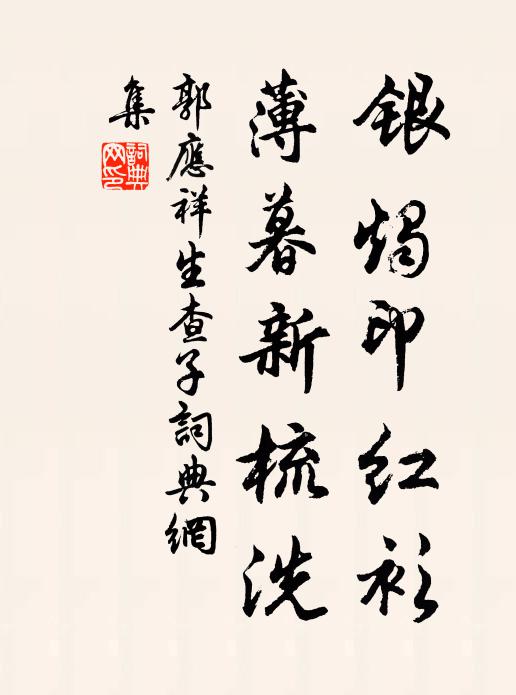 銀燭印红衫
薄暮新梳洗
郭應祥生查子詞典網
集
詞典網印